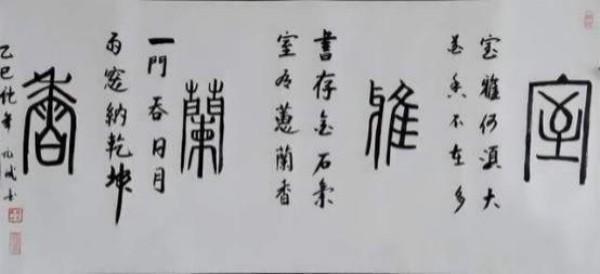 室
室雅何須大
花香不在多
雅
書存金石氣
室有蕙蘭香
蘭
一門吞日月
兩窓納乾坤
香
乙巳蛇年